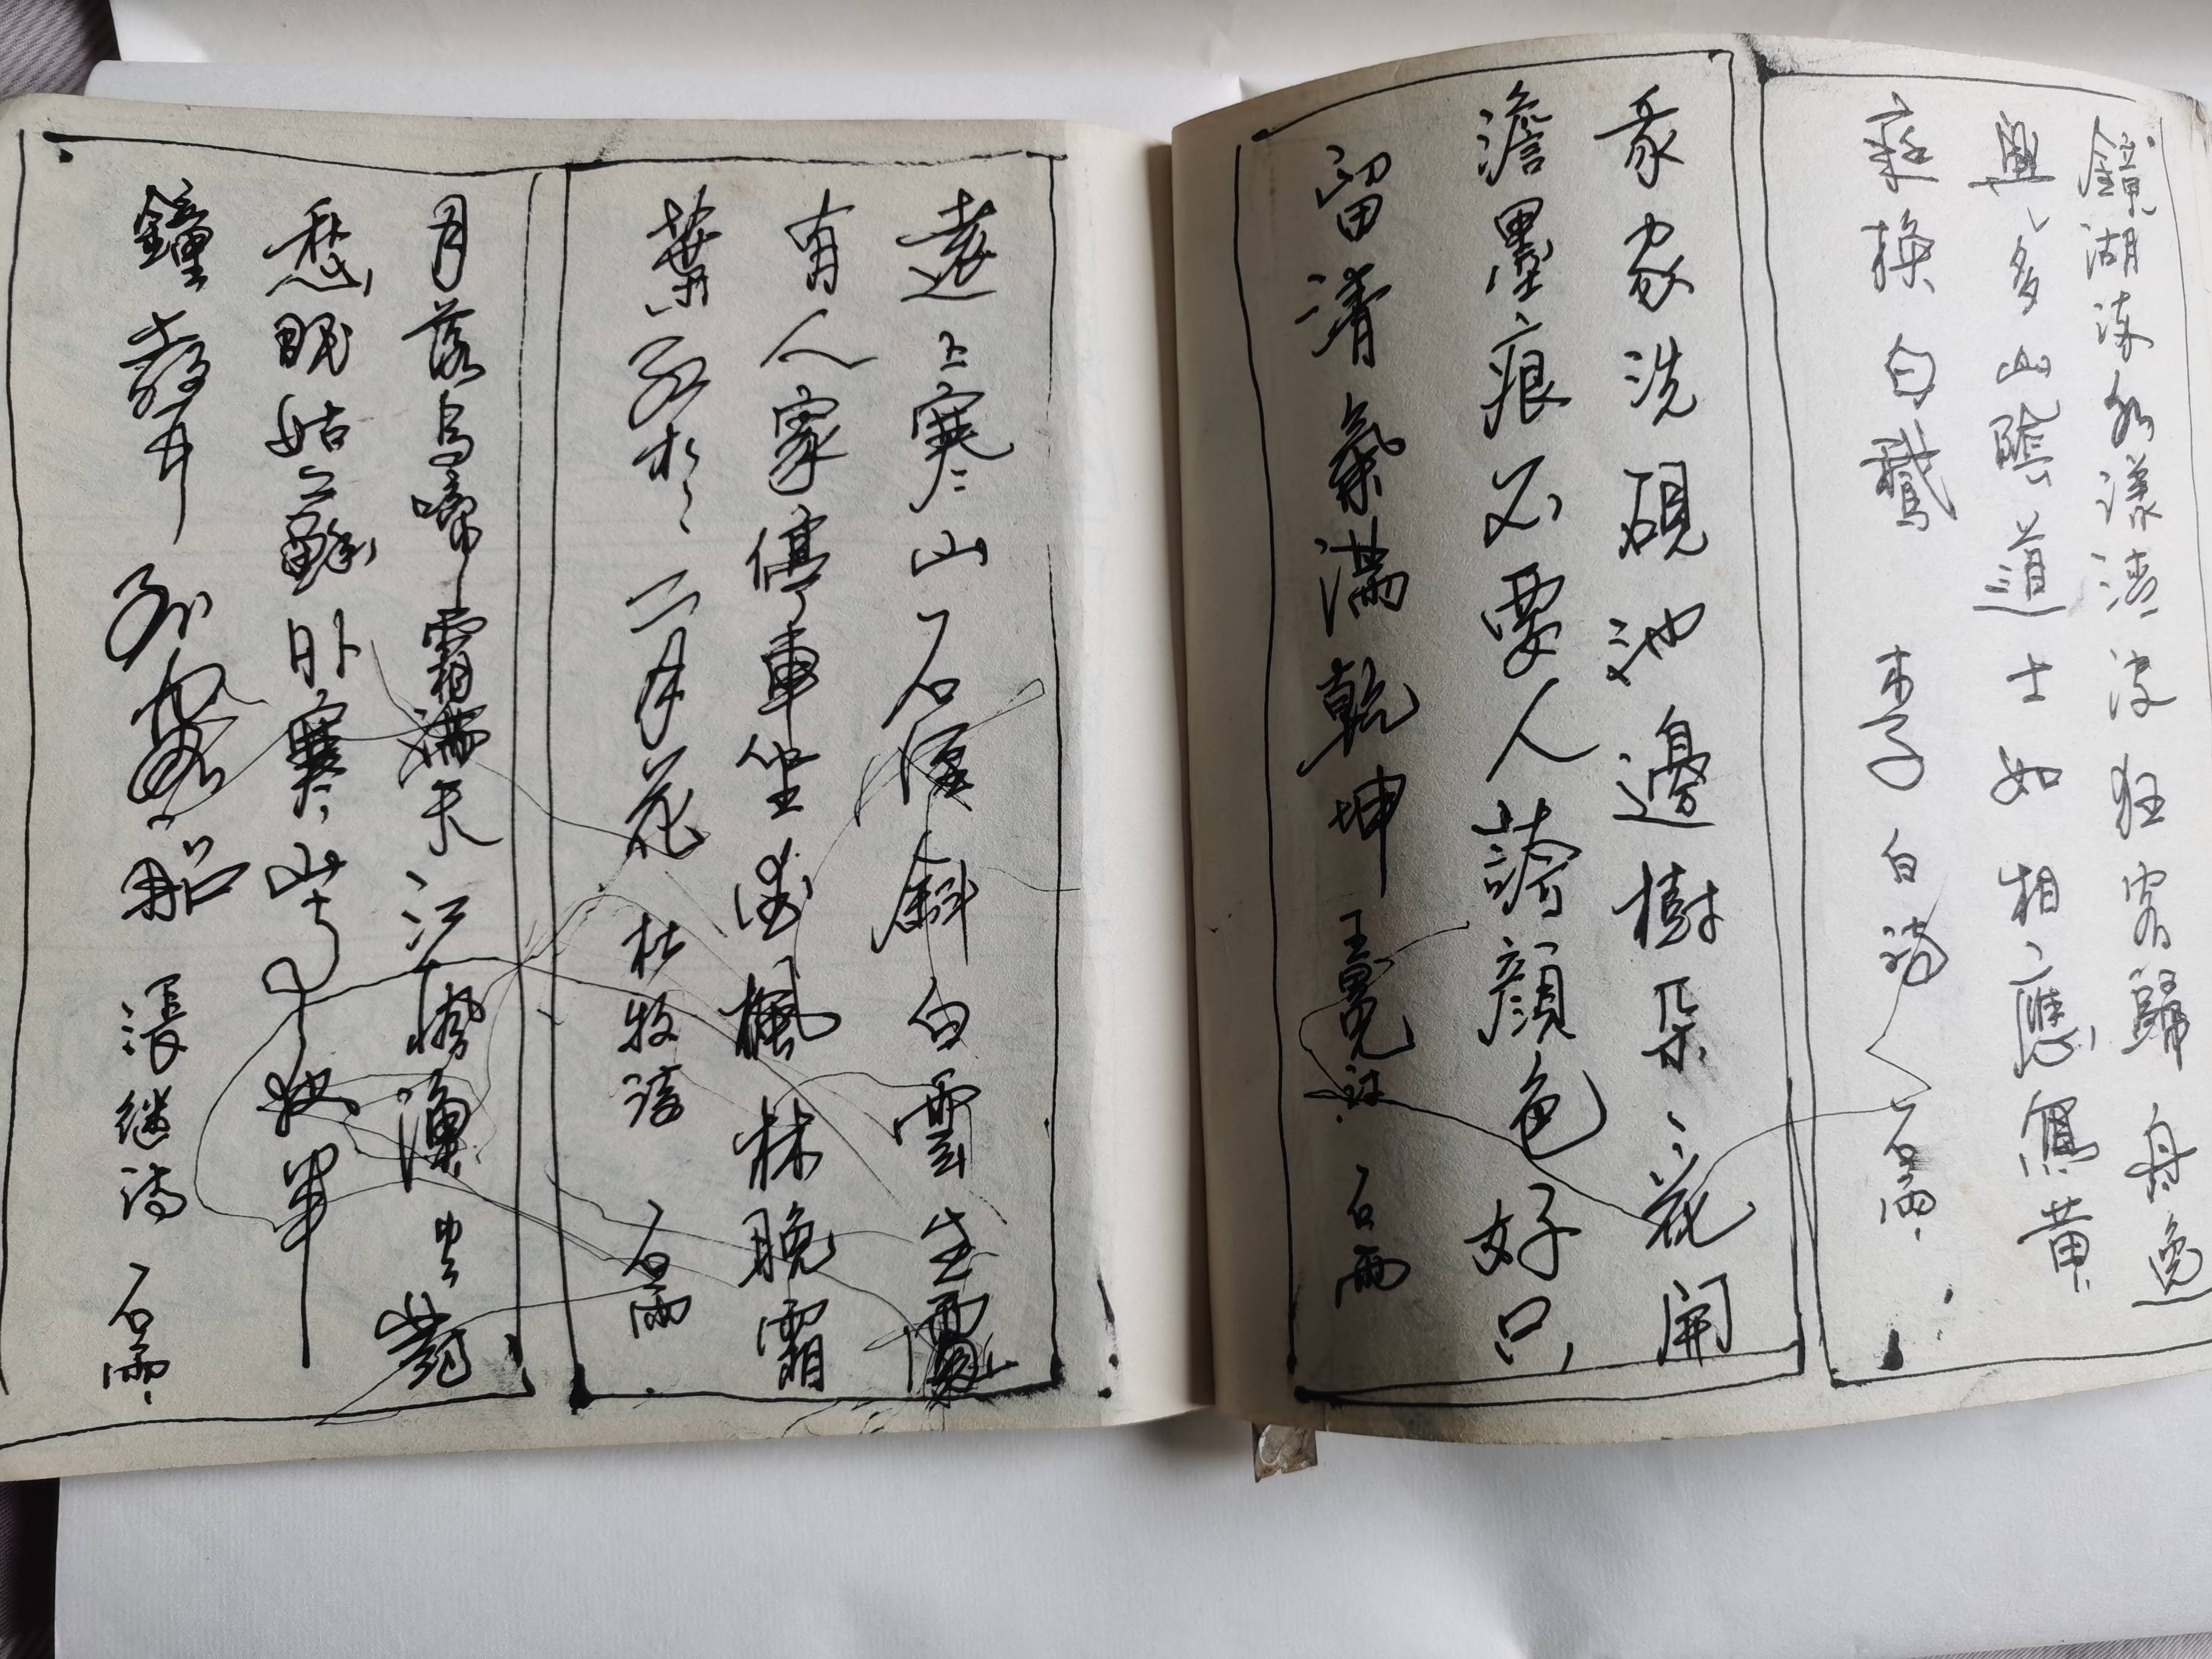 鏡湖流水漾清波狂客歸舟逸
興多山陰道士如相應寫黄
庭換白鵝 李白詩 石雨
我家洗硯池邊樹朵、花開
澹墨痕不要人誇顏色好只
留清氣滿乾坤 王冕詩 石雨
遠上寒山石徑斜白雲生處
有人家停車坐愛楓林晚霜
葉紅於二月花 杜牧詩 石雨
月落烏啼霜滿天江楓漁火對
愁眠姑蘇外寒山寺夜半
鐘聲到客船 張继詩 石雨